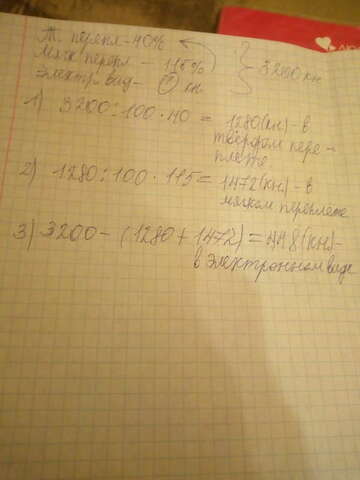 Т. перепл - 40%
Мягк перепл - 115%
Электр. вид - ? кн
3200 кн
1) 3200 : 100 · 40 = 1280 (кн) - в
твёрдом пере-
плёте
2) 1280 : 100 · 115 = 1472 (кн) - в
мягком переплёте
3) 3200 - (1280 + 1472) = 448 (кн) -
в электронном виде